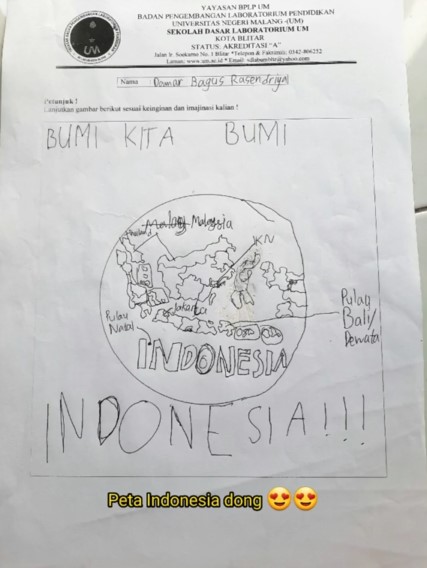 YAYASAN BPLP UM
BADAN PENGEMBANGAN LABORATORIUM PENDIDIKAN
UNIVERSITAS NEGERI MALANG -(UM)
SEKOLAH DASAR LABORATORIUM UM
KOTA BLITAR
STATUS: AKREDITASI "A"
Jl. Ir. Soekarno No. 1 Blitar *Telepon & Faksimili: 0342-806252
UM
Nama : Damar Bagus Rasendriya
Petunjuk !
Lanjutkan gambar berikut sesuai keinginan dan imajinasi kalian !
BUMI KITA BUMI
Malaysia
IKN
Jakarta
Pulau
Natal
Pulau
Bali/
Dewata
INDONESIA
INDONESIA!!!
Peta Indonesia dong 😍😍